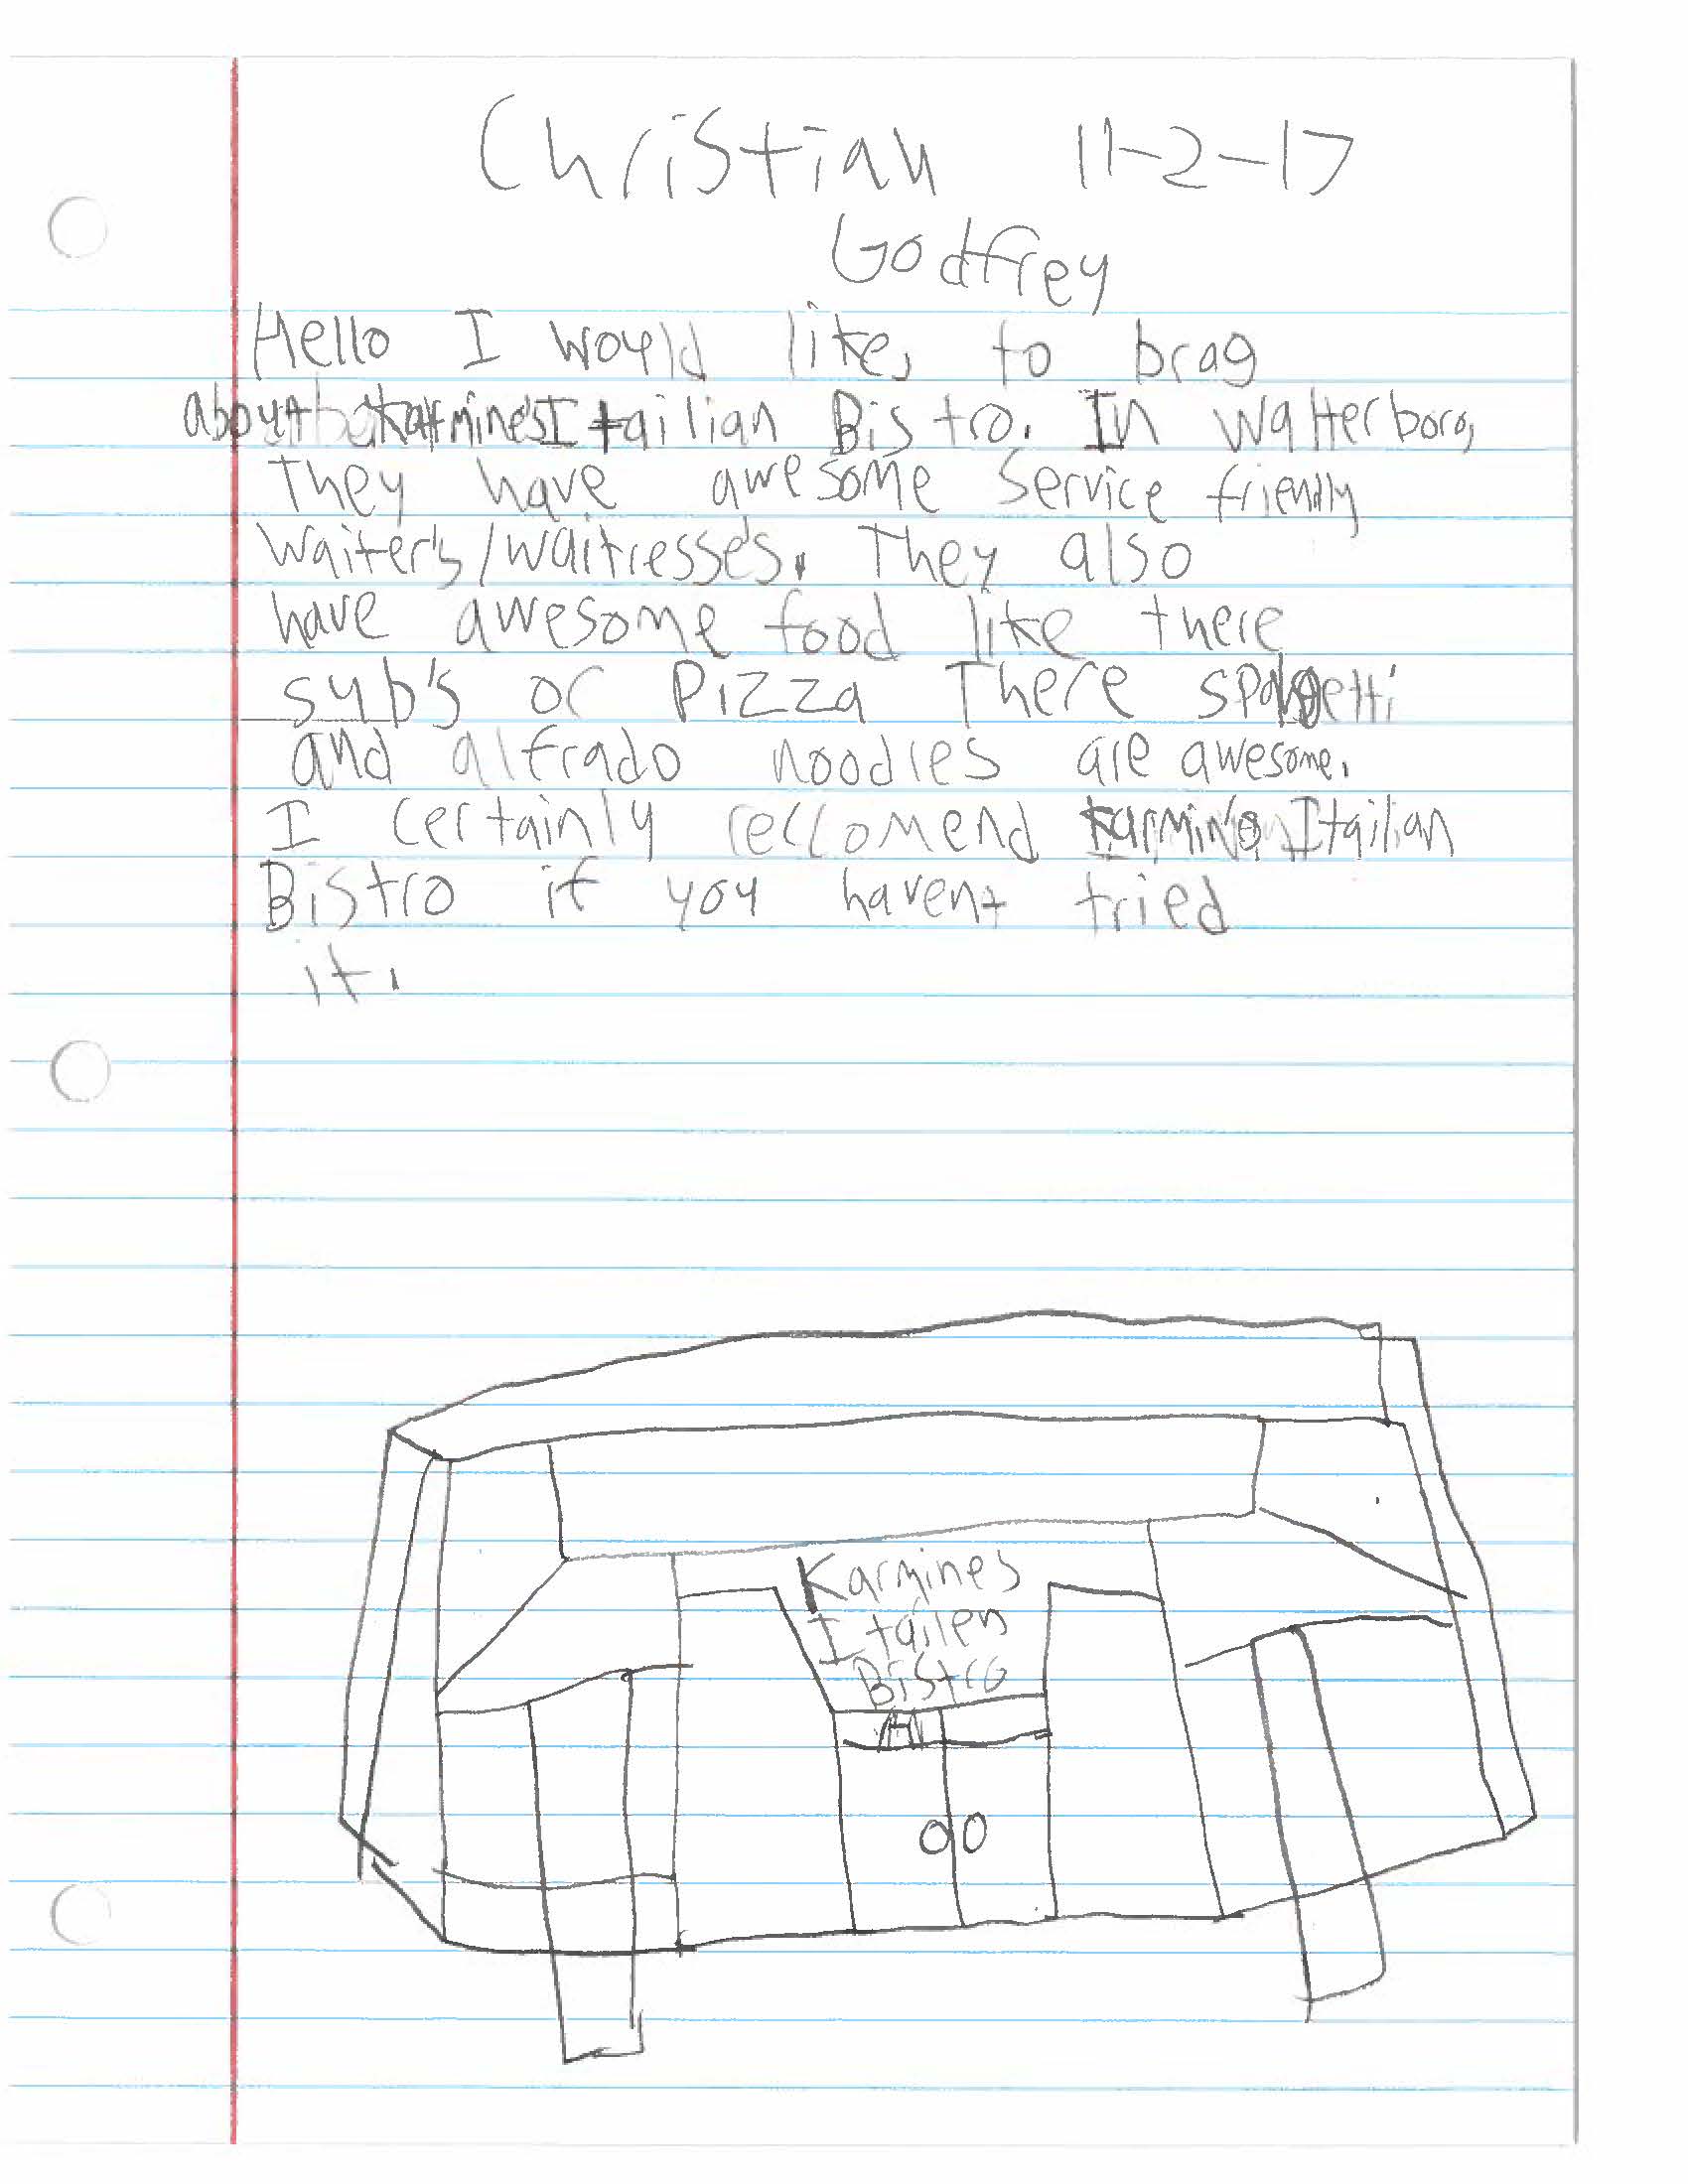 Christian 11-2-17
Godfrey
Hello I would like, to brag
about Karmine's Itailian Bistro. In Walterboro,
they have awesome service friendly
Waiter's/waitresse's. They also
have awesome food like there
sub's or Pizza There spahgetti
and alfrado noodles are awesome.
I certainly reccomend Karmine Itailian
Bistro if you havent tried
it.
Karmines
Itailen
Bistro